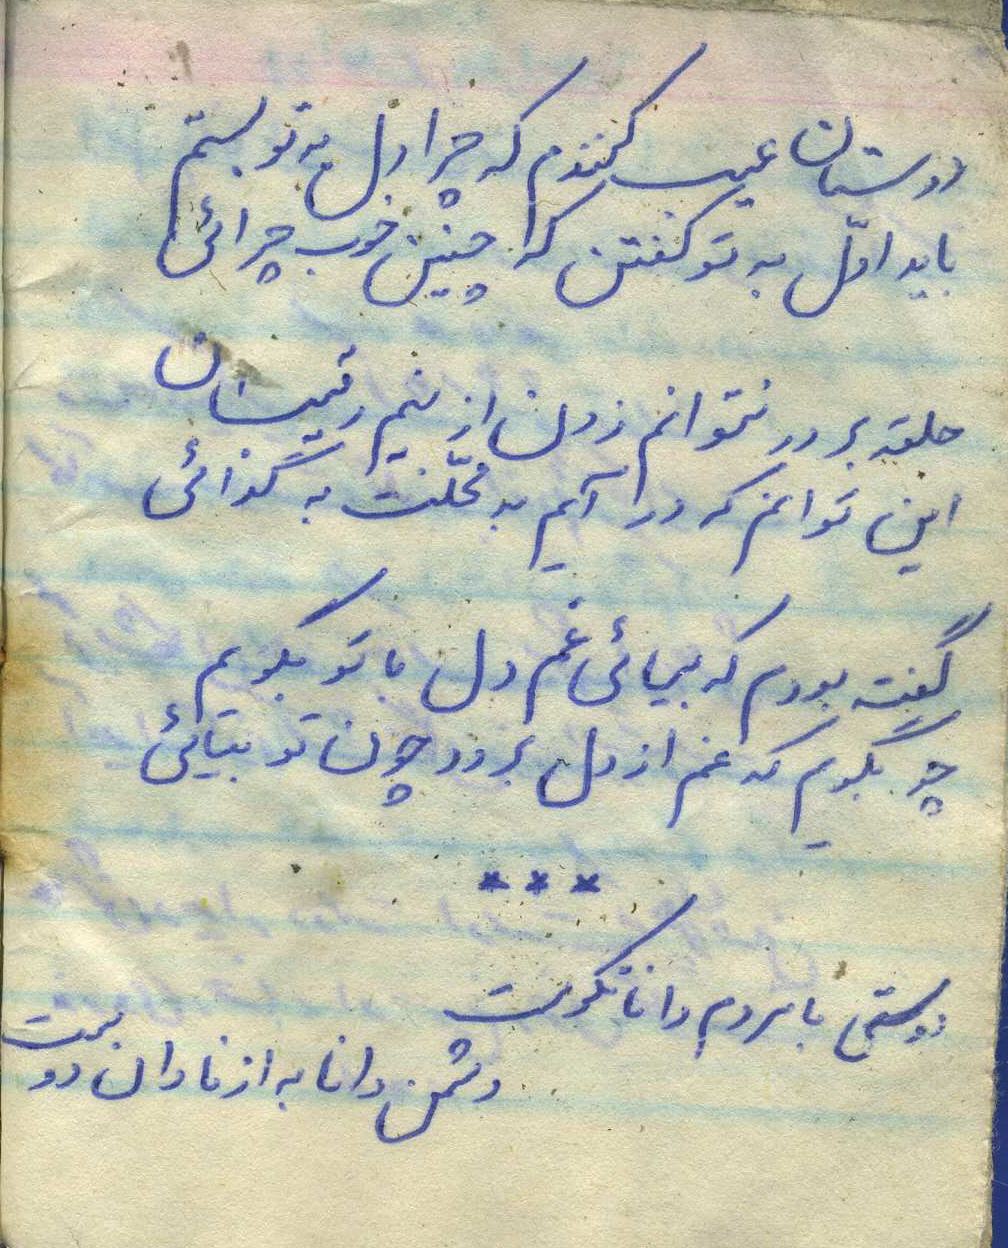 دوستان عیب کنندم که چرا دل به تو بستم
باید اوّل به تو گفتن که چنین خوب چرائی
حلقه بر در نتوانم زدن از بیم رقیبان
این توانم که در آیم به محلّت به گدائی
گفته بودم که بیائی غم دل با تو بگویم
چو بگویم که غم از دل برود چون تو بیائی
***
دوستی با مردم دانا نکوست
دشمن دانا به از نادان دوست